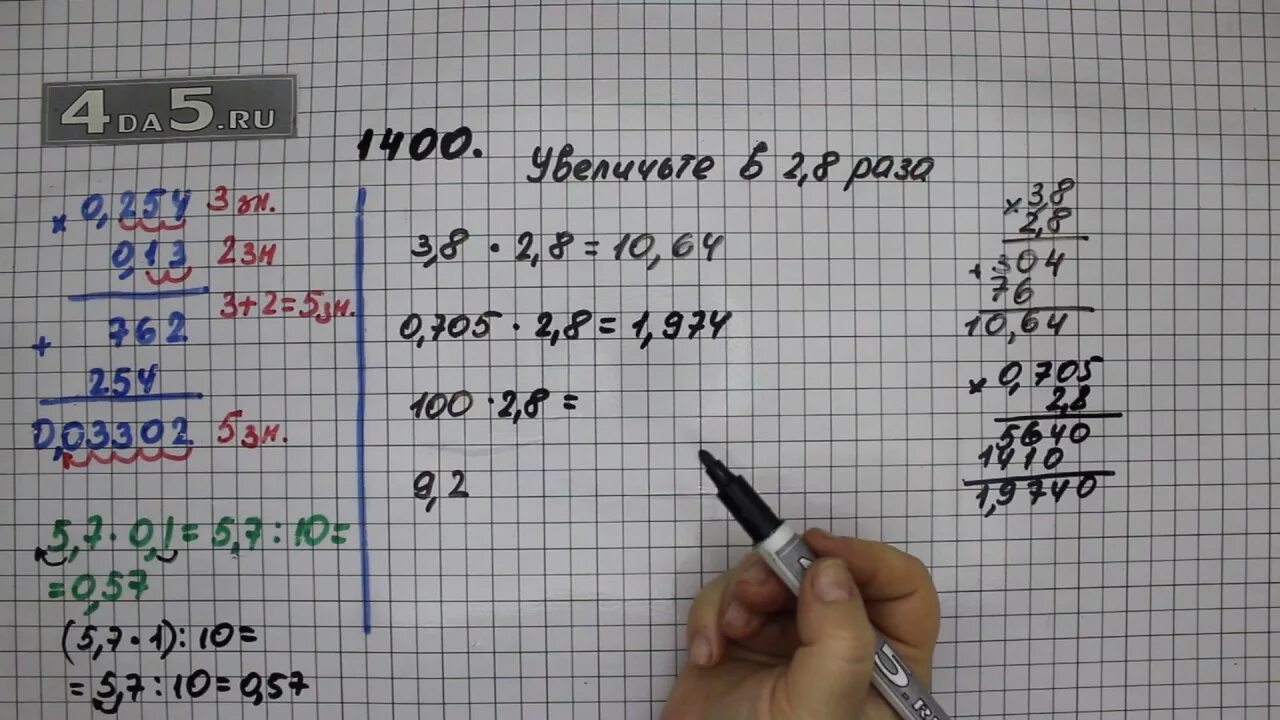 4DA5.RU
1400.
Увеличьте в 2,8 раза
× 0,254 3 зн.
0,13 2 зн
3+2=5 зн.
+ 762
254
0,03302 5 зн.
5,7 · 0,1 = 5,7 : 10 =
= 0,57
(5,7 · 1) : 10 =
= 5,7 : 10 = 0,57
3,8 · 2,8 = 10,64
0,705 · 2,8 = 1,974
100 · 2,8 =
9,2
× 3,8
2,8
+ 304
76
10,64
× 0,705
2,8
5640
1410
1,9740
5.R